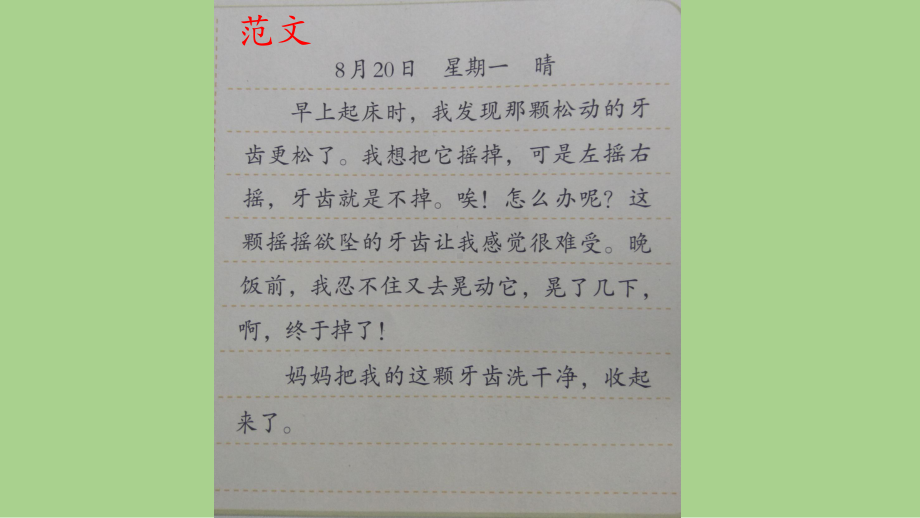 范文
8月20日 星期一 晴
早上起床时，我发现那颗松动的牙
齿更松了。我想把它摇掉，可是左摇右
摇，牙齿就是不掉。唉！怎么办呢？这
颗摇摇欲坠的牙齿让我感觉很难受。晚
饭前，我忍不住又去晃动它，晃了几下，
啊，终于掉了！
妈妈把我的这颗牙齿洗干净，收起
来了。